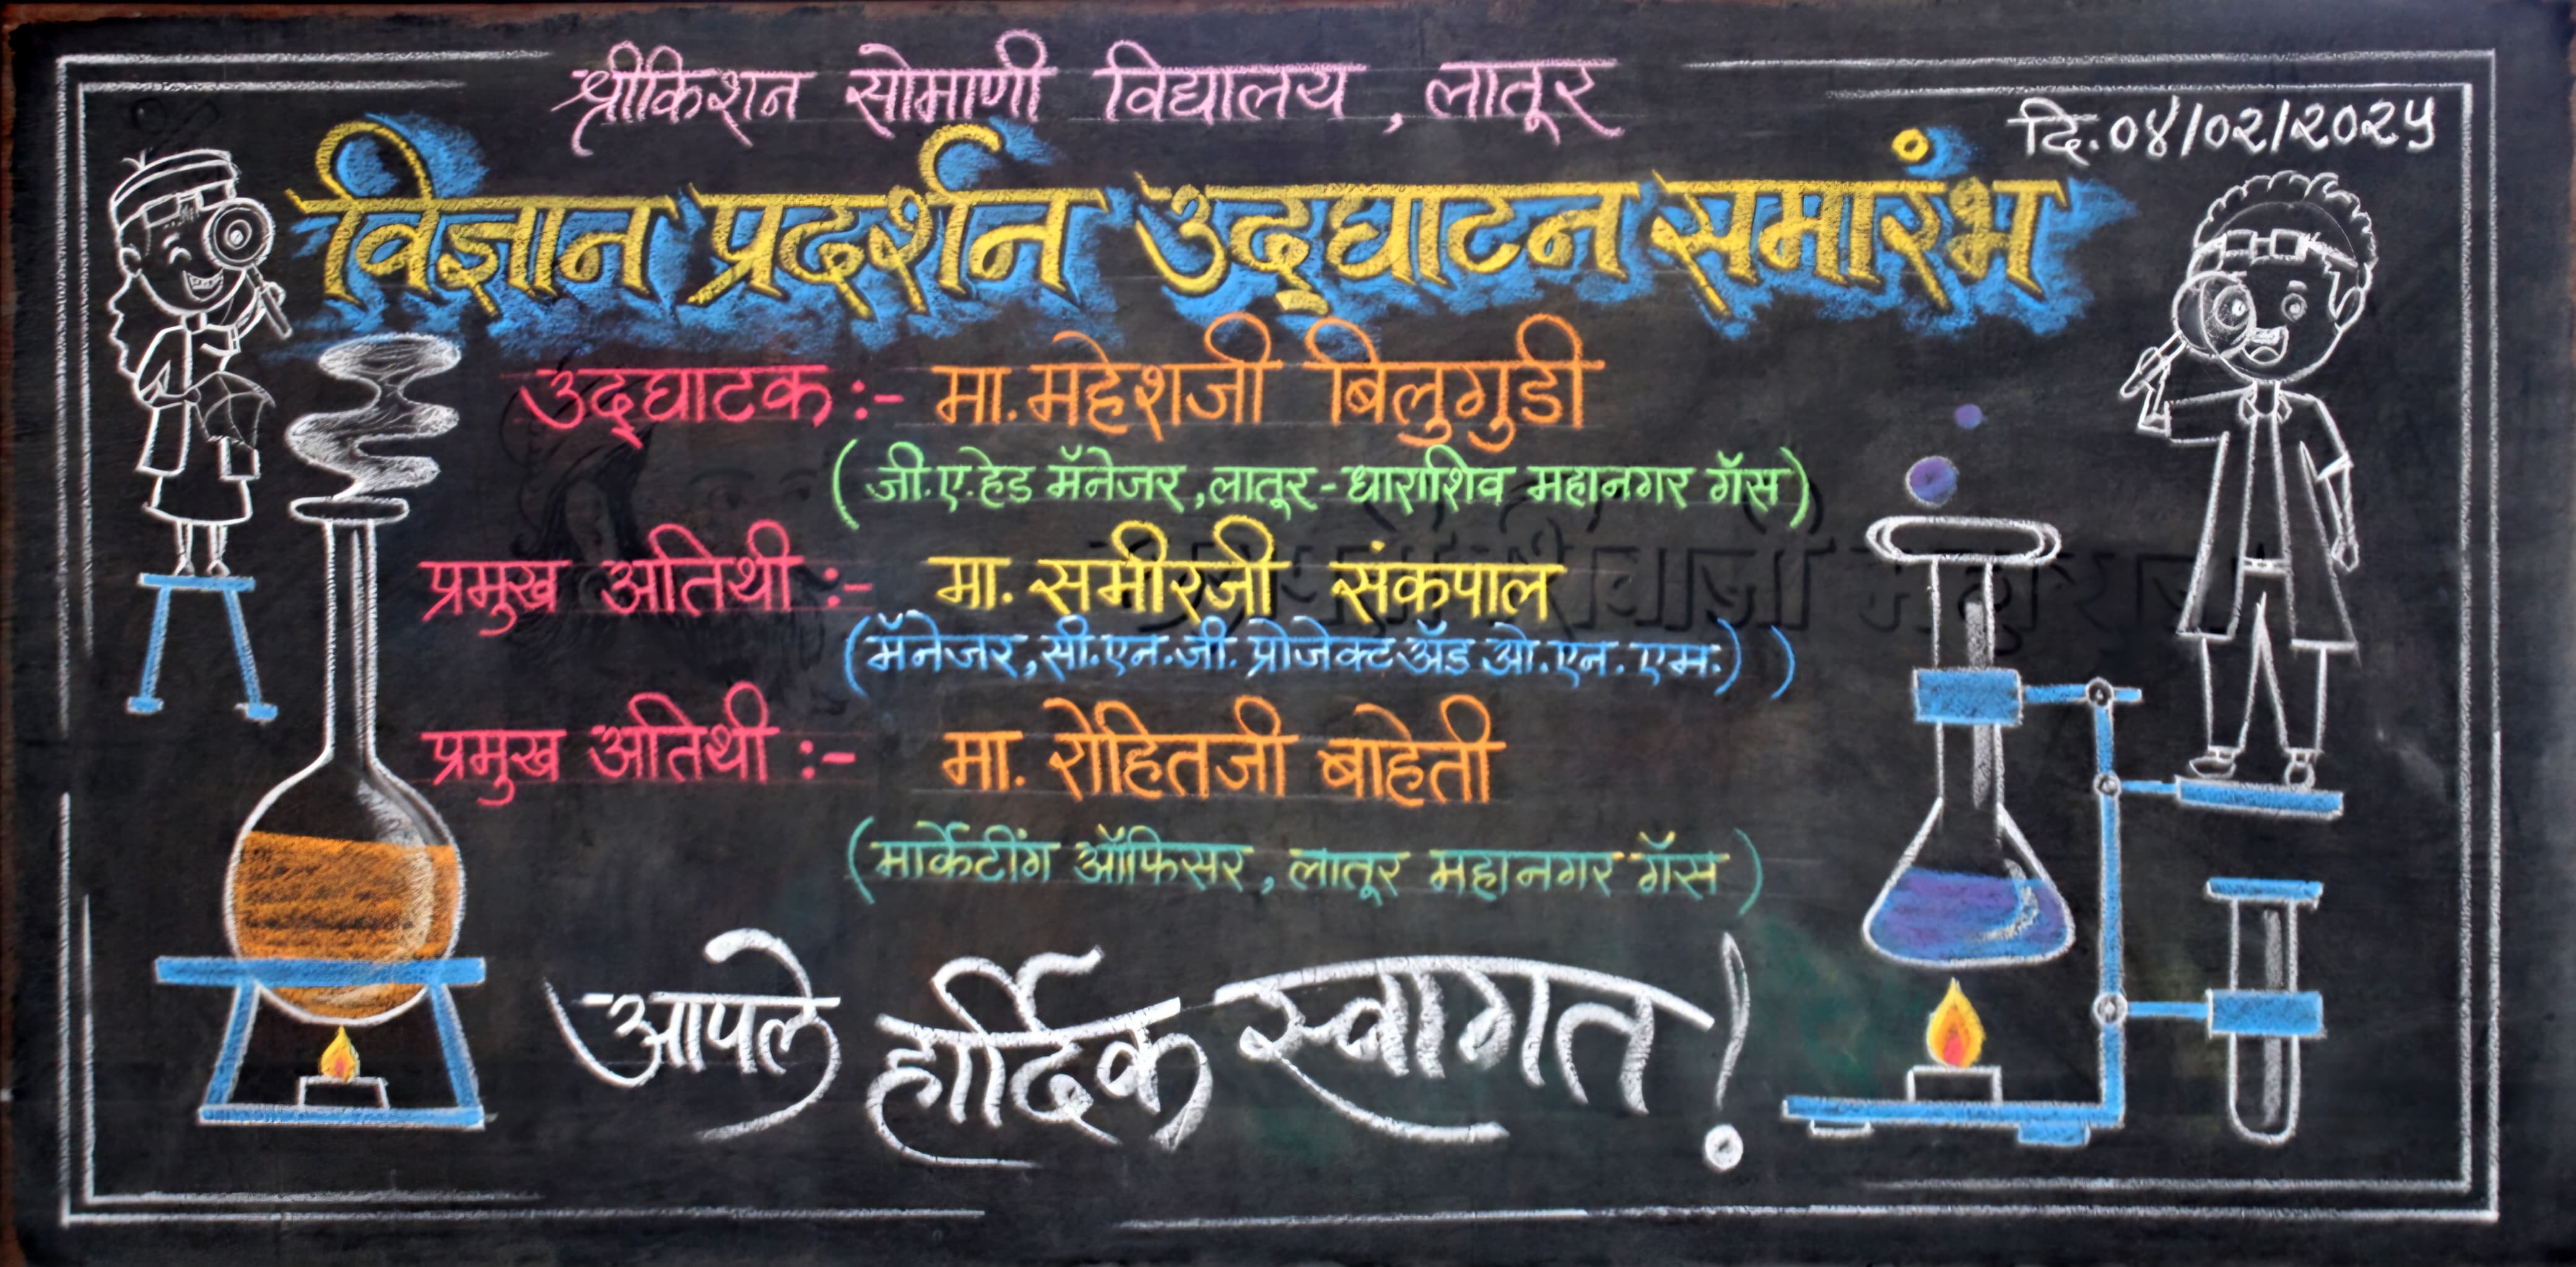 श्रीकिशन सोमाणी विद्यालय, लातूर
दि.०४/०२/२०२५
विज्ञान प्रदर्शन उद्‌घाटन समारंभ
उद्‌घाटक :- मा. महेशजी बिलुगुडी
(जी.ए.हेड मॅनेजर, लातूर-धाराशिव महानगर गॅस)
प्रमुख अतिथी :- मा. समीरजी संकपाल
(मॅनेजर, सी.एन.जी. प्रोजेक्ट अँड ओ.एन.एम.) )
प्रमुख अतिथी :- मा. रोहितजी बाहेती
(मार्केटींग ऑफिसर, लातूर महानगर गॅस)
आपले हार्दिक स्वागत!